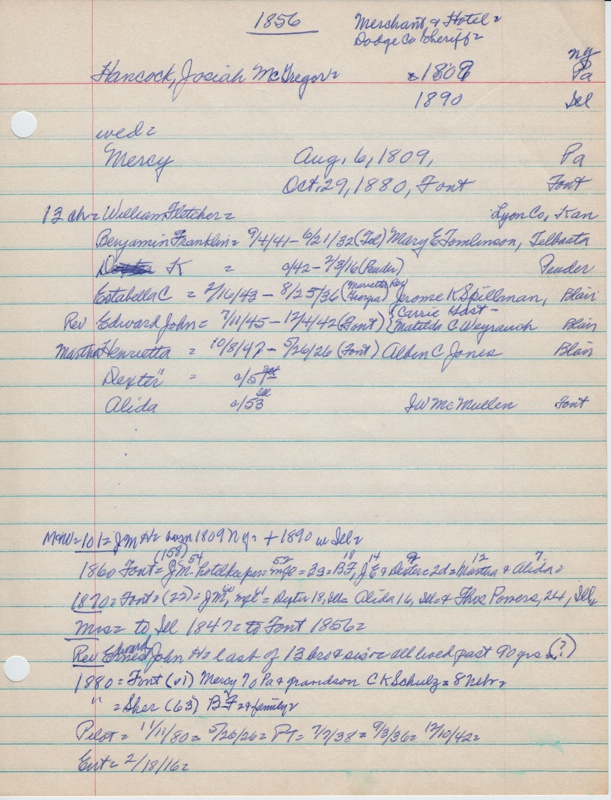 1856
Merchant & Hotel=
Dodge Co Sheriff=
NY
Hancock, Josiah McGregor= c1809 Pa
1890 Ill
wed=
Mercy Aug. 6, 1809, Pa
Oct. 29, 1880, Font Font
13 ch= William Fletcher= Lyon Co, Kan
Benjamin Franklin= 9/4/41 - 6/21/32 (Tel) Mary E Tomlinson, Telbasta
K = c/42 - 2/3/16 (Pender) Pender
Estabella C = 2/16/43 - 8/25/36 Jerome K Spillman, Blair
Rev Edward John = 7/11/45 - 12/4/42 (Font) {Carrie Hast - Matilda C Weyrauch Blair
Martha Henrietta = 10/8/47 - 5/26/26 (Font) Albin C Jones Blair
Dexter = c/51
Alida c/53 Ill JW McMullen Font
McW=101= JMH= born 1809 NY= + 1890 in Ill=
1860 Font= (158) JM 54 hotelkeeper= 52 = 3s= BF, 18 J E 14 & Dexter 9= 2d= Martha 12 & Alida 7=
1870= Font= (22)= JM, = Dexter 18, Ill= Alida 16, Ill= & Thos Powers, 24, Ill,
Mrs= to Ill 1847= to Font 1856=
Rev Edward John H= last of 13 bro & sis= all lived past 90 yrs= (?)
1880= Font (vi) Mercy 70 Pa & grandson C K Schulz= 8 Nebr=
" = Sher (63) BF= & family=
Pilot= 11/11/80= 5/26/26= PT= 7/7/38= 9/3/36= 12/10/42=
Ent= 2/18/16=